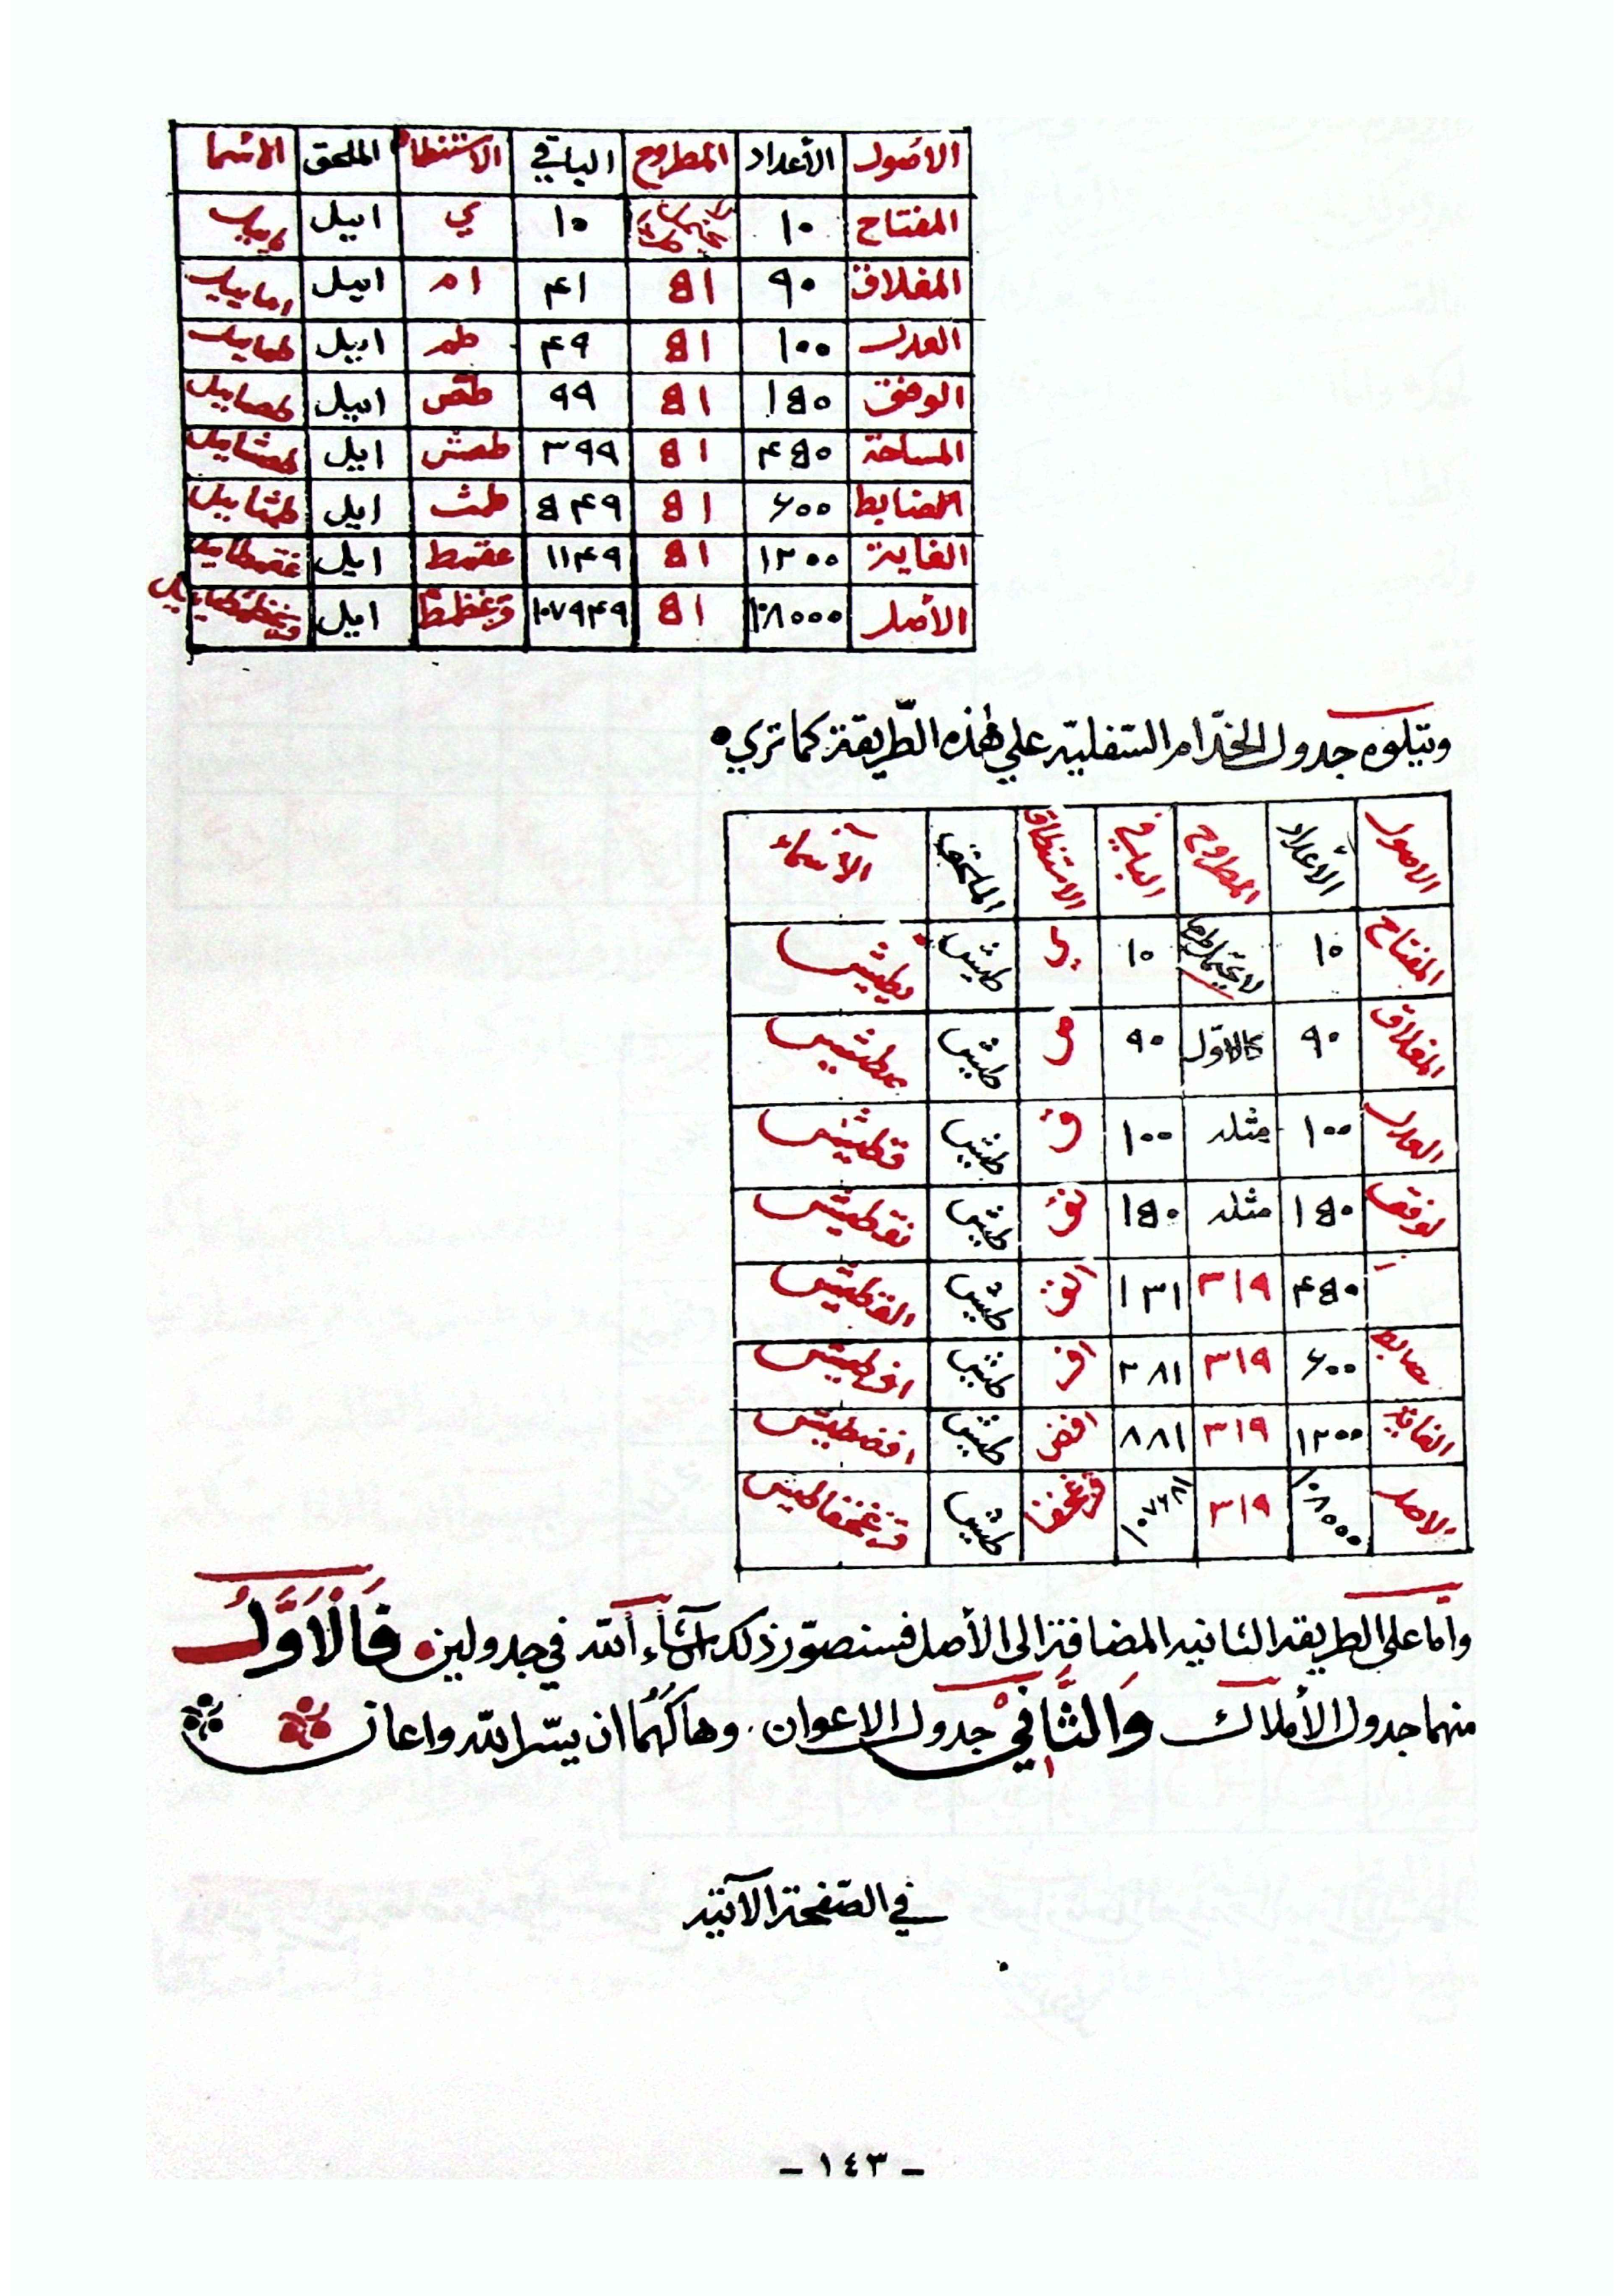 الأصول الأعداد المطروح الباقي الاستنطاق الملحق الاسما
المفتاح ١٠ ١٠ ي اييل
المغلاق ٩٠ ٥١ ۴١ ام اييل اماييل
العدل ١٠٠ ٥١ ۴٩ طم اييل طماييل
الوفق ١٥٠ ٥١ ٩٩ طص اييل طصاييل
المساحة ۴٥٠ ٥١ ٣٩٩ طصش اييل طصشاييل
الضابط ۶٠٠ ٥١ ٥۴٩ طمث اييل طمثاييل
الغاية ١٢٠٠ ٥١ ١١۴٩ غقمط اييل غقمطاييل
الأصل ١٠٨٠٠٠ ٥١ ١٠٧٩۴٩ قزغظمط اييل قزغظمطاييل
ويتلوه جدول الخدّام السّفليّة علي هٰذه الطّريقة كما تري
الاصول الأعداد المطروح الباقي الاستنطاق الملحق الأسماء
المفتاح ١٠ لا يحتمل طرحا ١٠ ي طيش يطيش
المغلاق ٩٠ كالاوّل ٩٠ ص طيش صطيش
العدل ١٠٠ مثله ١٠٠ ق طيش قطيش
لوفق ١٥٠ مثله ١٥٠ نق طيش نقطيش
۴٥٠ ٣١٩ ١٣١ الق طيش القطيش
ضابط ۶٠٠ ٣١٩ ٢٨١ افر طيش افرطيش
الغاية ١٢٠٠ ٣١٩ ٨٨١ افض طيش افضطيش
الاصل ١٠٨٠٠٠ ٣١٩ ١٠٧۶٨١ قزغخفا طيش قزغخفاطيش
واما على الطريقة الثانيه المضافة الى الأصل فسنصوّر ذلك ان شآء الله في جدولين فَالْاَوَّلُ
منهما جدول الأملاك وَالثَّانِيْ جدول الاعوان وهاكهُما ان يسّر الله واعان
في الصّفحة الآتية
- ١٤٣ -